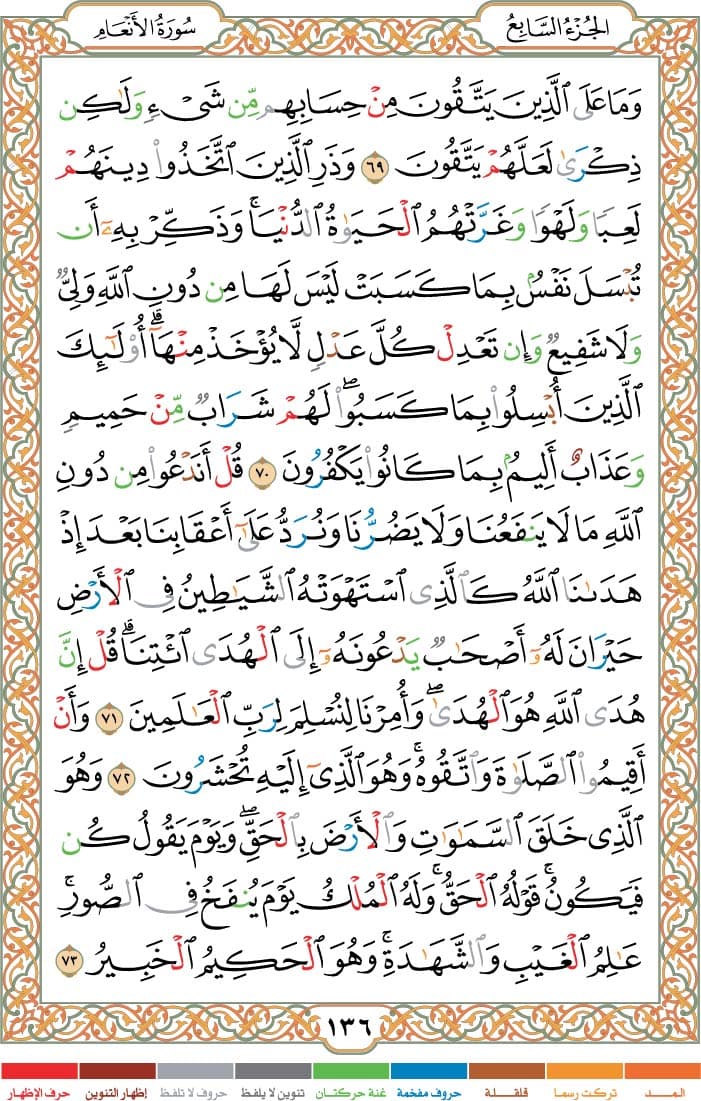 الجُزْءُ السَّابِعُ
سُورَةُ الأَنْعَامِ
وَمَا عَلَى ٱلَّذِينَ يَتَّقُونَ مِنْ حِسَابِهِم مِّن شَىْءٍ وَلَٰكِن
ذِكْرَىٰ لَعَلَّهُمْ يَتَّقُونَ ٦٩ وَذَرِ ٱلَّذِينَ ٱتَّخَذُوا۟ دِينَهُمْ
لَعِبًا وَلَهْوًا وَغَرَّتْهُمُ ٱلْحَيَوٰةُ ٱلدُّنْيَا ۚ وَذَكِّرْ بِهِۦٓ أَن
تُبْسَلَ نَفْسٌۢ بِمَا كَسَبَتْ لَيْسَ لَهَا مِن دُونِ ٱللَّهِ وَلِىٌّ
وَلَا شَفِيعٌ وَإِن تَعْدِلْ كُلَّ عَدْلٍ لَّا يُؤْخَذْ مِنْهَآ ۗ أُو۟لَٰٓئِكَ
ٱلَّذِينَ أُبْسِلُوا۟ بِمَا كَسَبُوا۟ ۖ لَهُمْ شَرَابٌ مِّنْ حَمِيمٍ
وَعَذَابٌ أَلِيمٌۢ بِمَا كَانُوا۟ يَكْفُرُونَ ٧٠ قُلْ أَنَدْعُوا۟ مِن دُونِ
ٱللَّهِ مَا لَا يَنفَعُنَا وَلَا يَضُرُّنَا وَنُرَدُّ عَلَىٰٓ أَعْقَابِنَا بَعْدَ إِذْ
هَدَىٰنَا ٱللَّهُ كَٱلَّذِى ٱسْتَهْوَتْهُ ٱلشَّيَٰطِينُ فِى ٱلْأَرْضِ
حَيْرَانَ لَهُۥٓ أَصْحَٰبٌ يَدْعُونَهُۥٓ إِلَى ٱلْهُدَى ٱئْتِنَا ۗ قُلْ إِنَّ
هُدَى ٱللَّهِ هُوَ ٱلْهُدَىٰ ۖ وَأُمِرْنَا لِنُسْلِمَ لِرَبِّ ٱلْعَٰلَمِينَ ٧١ وَأَنْ
أَقِيمُوا۟ ٱلصَّلَوٰةَ وَٱتَّقُوهُ ۚ وَهُوَ ٱلَّذِىٓ إِلَيْهِ تُحْشَرُونَ ٧٢ وَهُوَ
ٱلَّذِى خَلَقَ ٱلسَّمَٰوَٰتِ وَٱلْأَرْضَ بِٱلْحَقِّ ۖ وَيَوْمَ يَقُولُ كُن
فَيَكُونُ ۚ قَوْلُهُ ٱلْحَقُّ ۚ وَلَهُ ٱلْمُلْكُ يَوْمَ يُنفَخُ فِى ٱلصُّورِ ۚ
عَٰلِمُ ٱلْغَيْبِ وَٱلشَّهَٰدَةِ ۚ وَهُوَ ٱلْحَكِيمُ ٱلْخَبِيرُ ٧٣
١٣٦
المـــد
تركت رسما
قلقـلة
حروف مفخمة
غنة حركتان
تنوين لا يلفظ
حروف لا تلفظ
إظهار التنوين
حرف الإظهار